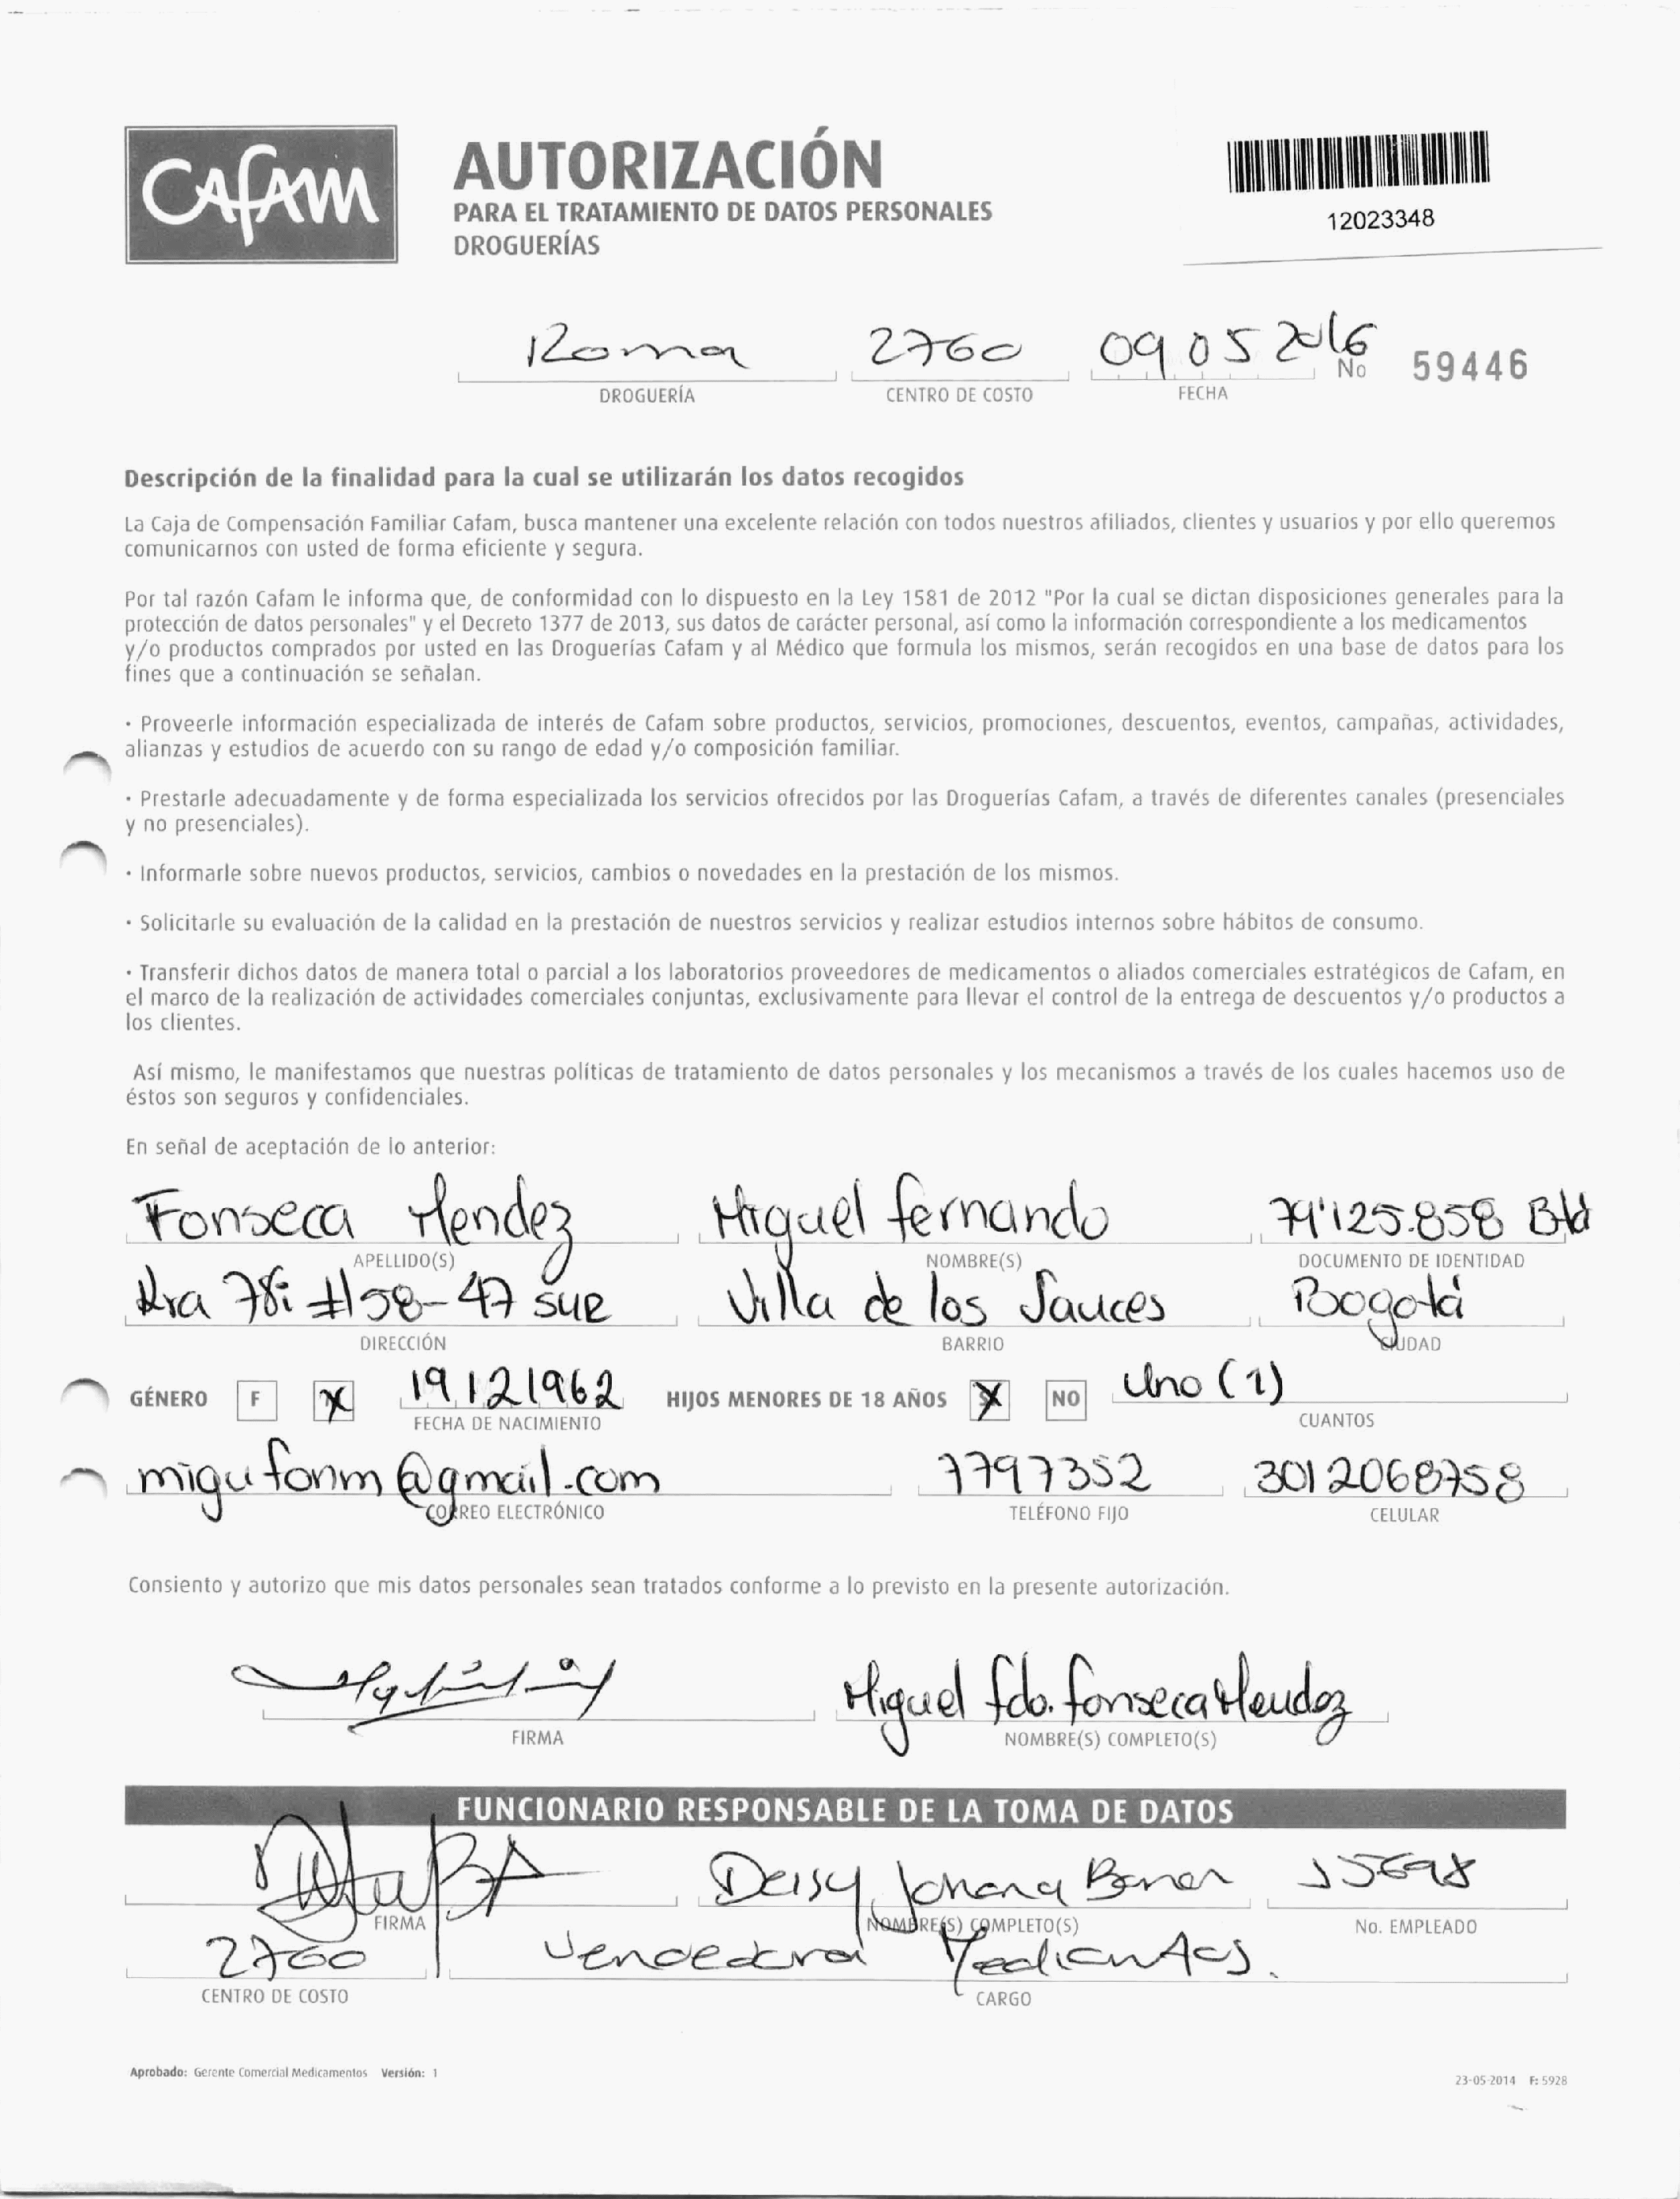 CAFAM
AUTORIZACIÓN
PARA EL TRATAMIENTO DE DATOS PERSONALES
DROGUERÍAS
12023348
Roma 2760 09 05 2016 No 59446
DROGUERÍA CENTRO DE COSTO FECHA
Descripción de la finalidad para la cual se utilizarán los datos recogidos
La Caja de Compensación Familiar Cafam, busca mantener una excelente relación con todos nuestros afiliados, clientes y usuarios y por ello queremos
comunicarnos con usted de forma eficiente y segura.
Por tal razón Cafam le informa que, de conformidad con lo dispuesto en la Ley 1581 de 2012 "Por la cual se dictan disposiciones generales para la
protección de datos personales" y el Decreto 1377 de 2013, sus datos de carácter personal, así como la información correspondiente a los medicamentos
y/o productos comprados por usted en las Droguerías Cafam y al Médico que formula los mismos, serán recogidos en una base de datos para los
fines que a continuación se señalan.
· Proveerle información especializada de interés de Cafam sobre productos, servicios, promociones, descuentos, eventos, campañas, actividades,
alianzas y estudios de acuerdo con su rango de edad y/o composición familiar.
· Prestarle adecuadamente y de forma especializada los servicios ofrecidos por las Droguerías Cafam, a través de diferentes canales (presenciales
y no presenciales).
· Informarle sobre nuevos productos, servicios, cambios o novedades en la prestación de los mismos.
· Solicitarle su evaluación de la calidad en la prestación de nuestros servicios y realizar estudios internos sobre hábitos de consumo.
· Transferir dichos datos de manera total o parcial a los laboratorios proveedores de medicamentos o aliados comerciales estratégicos de Cafam, en
el marco de la realización de actividades comerciales conjuntas, exclusivamente para llevar el control de la entrega de descuentos y/o productos a
los clientes.
Así mismo, le manifestamos que nuestras políticas de tratamiento de datos personales y los mecanismos a través de los cuales hacemos uso de
éstos son seguros y confidenciales.
En señal de aceptación de lo anterior:
Fonseca Mendez Miguel fernando 79'125.858 Btá
APELLIDO(S) NOMBRE(S) DOCUMENTO DE IDENTIDAD
Kra 78i #58-47 sur Villa de los Sauces Bogotá
DIRECCIÓN BARRIO CIUDAD
GÉNERO F X 19121962 HIJOS MENORES DE 18 AÑOS X NO Uno (1)
FECHA DE NACIMIENTO CUANTOS
migufonm@gmail.com 7797352 3012068758
CORREO ELECTRÓNICO TELÉFONO FIJO CELULAR
Consiento y autorizo que mis datos personales sean tratados conforme a lo previsto en la presente autorización.
Miguel fdo. fonseca Mendez
FIRMA NOMBRE(S) COMPLETO(S)
FUNCIONARIO RESPONSABLE DE LA TOMA DE DATOS
Deisy Johana 15698
FIRMA NOMBRE(S) COMPLETO(S) No. EMPLEADO
2760 Vendedora
CENTRO DE COSTO CARGO
Aprobado: Gerente Comercial Medicamentos Versión: 1
23-05-2014 F: 5928